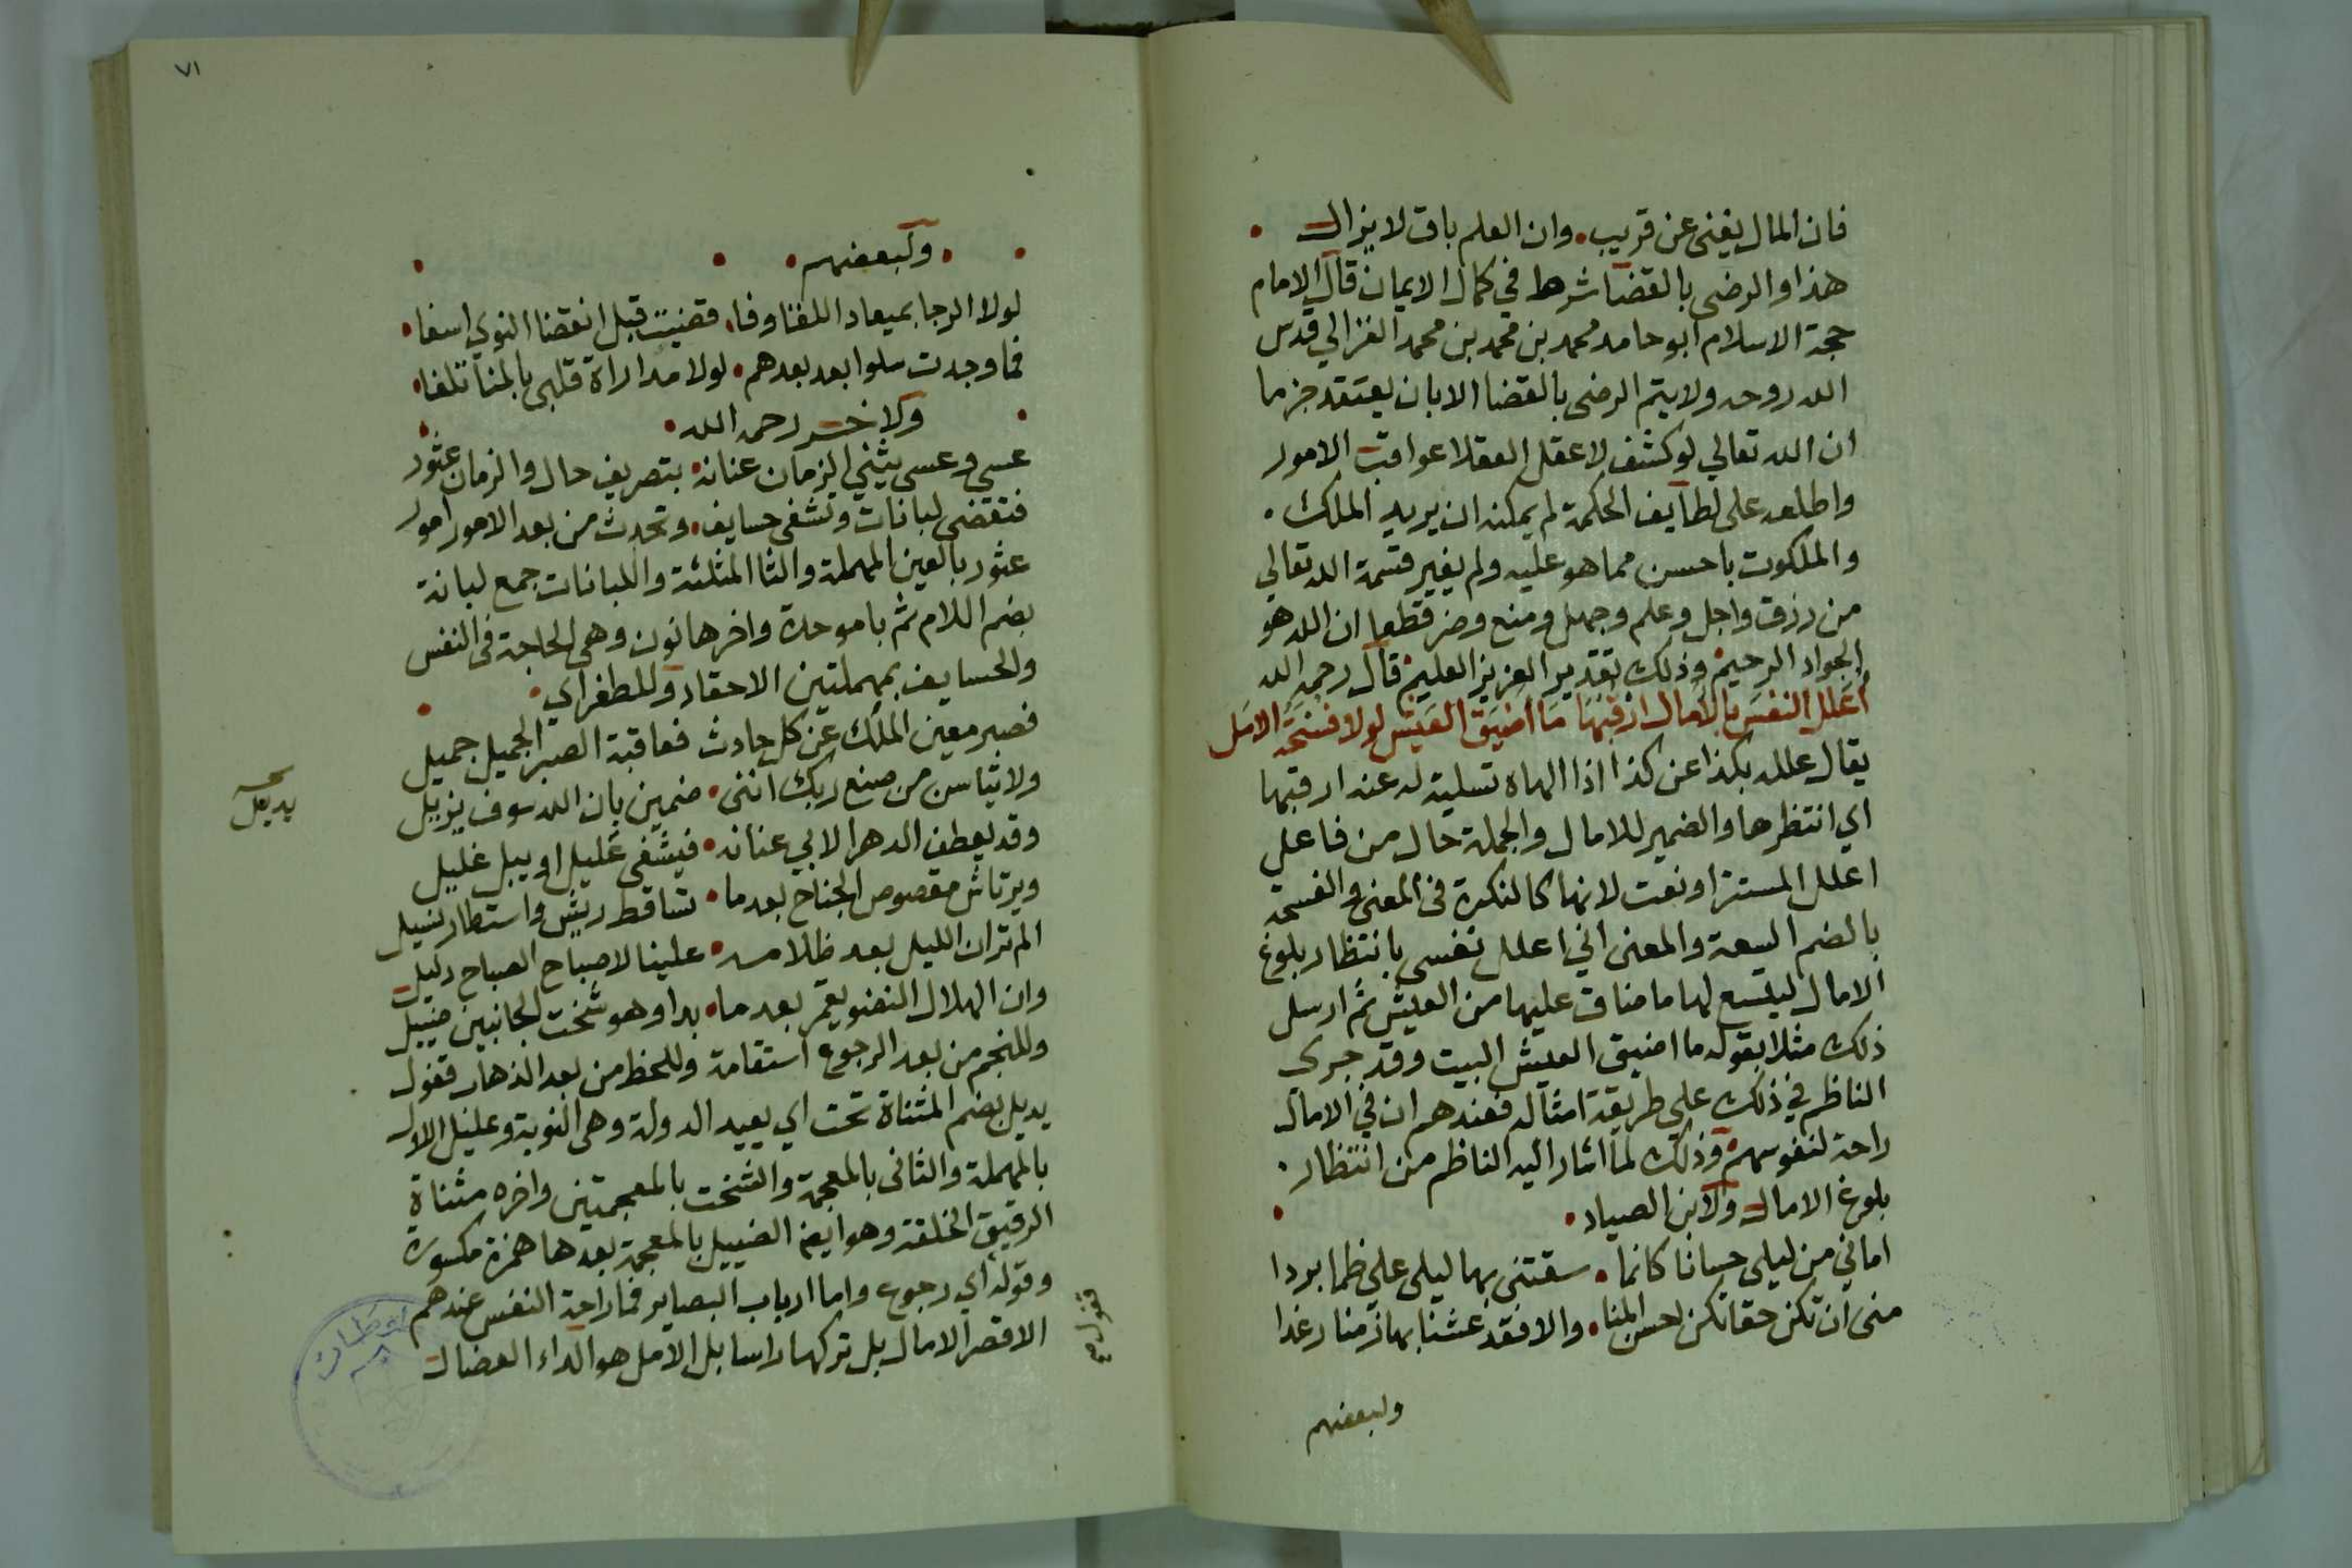 فان المال يفنى عن قريب • وان العلم باق لا يزال •
هذا والرضى بالقضا شرط في كمال الايمان قال الامام
حجة الاسلام ابو حامد محمد بن محمد بن محمد الغزالي قدس
الله روحه ولا يتم الرضى بالقضا الا بان يعتقد جزما
ان الله تعالي لو كشف لاعقل العقلا عواقب الامور
واطلعه على لطايف الحكمة لم يمكنه ان يريد الملك •
والملكوت باحسن مما هو عليه ولم يغير قسمة الله تعالي
من رزق واجل وعلم وجهل ومنع وضر قطعا ان الله هو
الجواد الرحيم • وذلك تقدير العزيز العليم • قال رحمه الله
أعلل النفس بالآمال ارقبها ما اضيق العيش لولا فسحة الامل
يقال علله بكذا عن كذا اذا الهاه تسلية له عنه ارقبها
اي انتظرها والضمير للامال والجملة حال من فاعل
اعلل المستتر او نعت لانها كالنكرة في المعنى والفسحة
بالضم السعة والمعنى اني اعلل نفسي بانتظار بلوغ
الامال ليتسع لها ما ضاق عليها من العيش ثم ارسل
ذلك مثلا بقوله ما اضيق العيش البيت وقد جرى
الناظم في ذلك على طريقة امثاله فعندهم ان في الامال
راحة لنفوسهم • وذلك لما اشار اليه الناظم من انتظار •
بلوغ الامال ولابن الصياد •
اماني من ليلى حسانا كانما • سقتني بها ليلى علي ظما بردا
منى ان تكن حقا تكن احسن المنا • والا فقد عشنا بها زمنا رغدا
ولبعضهم
٧١
• ولبعضهم •
لولا الرجا بميعاد اللقا وفا • قضيت قبل انقضا النوي اسفا •
فما وجدت سلوا بعد بعدهم • لولا مداراة قلبي بالمنا تلفا •
ولاخر رحمه الله •
عسي وعسى يثني الزمان عنانه • بتصريف حال والزمان عثور
فتقضى لبانات وتشفى حسايف • وتحدث من بعد الامور امور
عثور بالعين المهملة والثا المثلثة واللبانات جمع لبانة
بضم اللام ثم با موحدة واخرها نون وهي الحاجة في النفس
والحسايف بمهملتين الاحقاد وللطغراي •
فصبر معين الملك عن كل حادث فعاقبة الصبر الجميل جميل
ولا تياسن من صنع ربك انني • ضمين بان الله سوف يزيل
يديل
وقد يعطف الدهر الابي عنانه • فيشفى عليل او يبل غليل
ويرتاش مقصوص الجناح بعدما • تساقط ريش واستطار نسيل
الم تر ان الليل بعد ظلامه • علينا لاصباح الصباح دليل
وان الهلال النضو يقمر بعدما • بدا وهو شخت الجانبين ضييل
وللنجم من بعد الرجوع استقامة وللحظ من بعد الذهاب قفول
يديل بضم المثناة تحت اي يعيد الدولة وهي النوبة وعليل الاول
بالمهملة والثاني بالمعجمة والشخت بالمعجمتين واخره مثناة
الرقيق الخلقة وهو ايضا الضييل بالمعجمة بعدها همزة مكسورة
وقوله اي رجوع واما ارباب البصاير فما راحة النفس عندهم
الا قصر الامال بل تركها راسا بل الامل هو الداء العضال